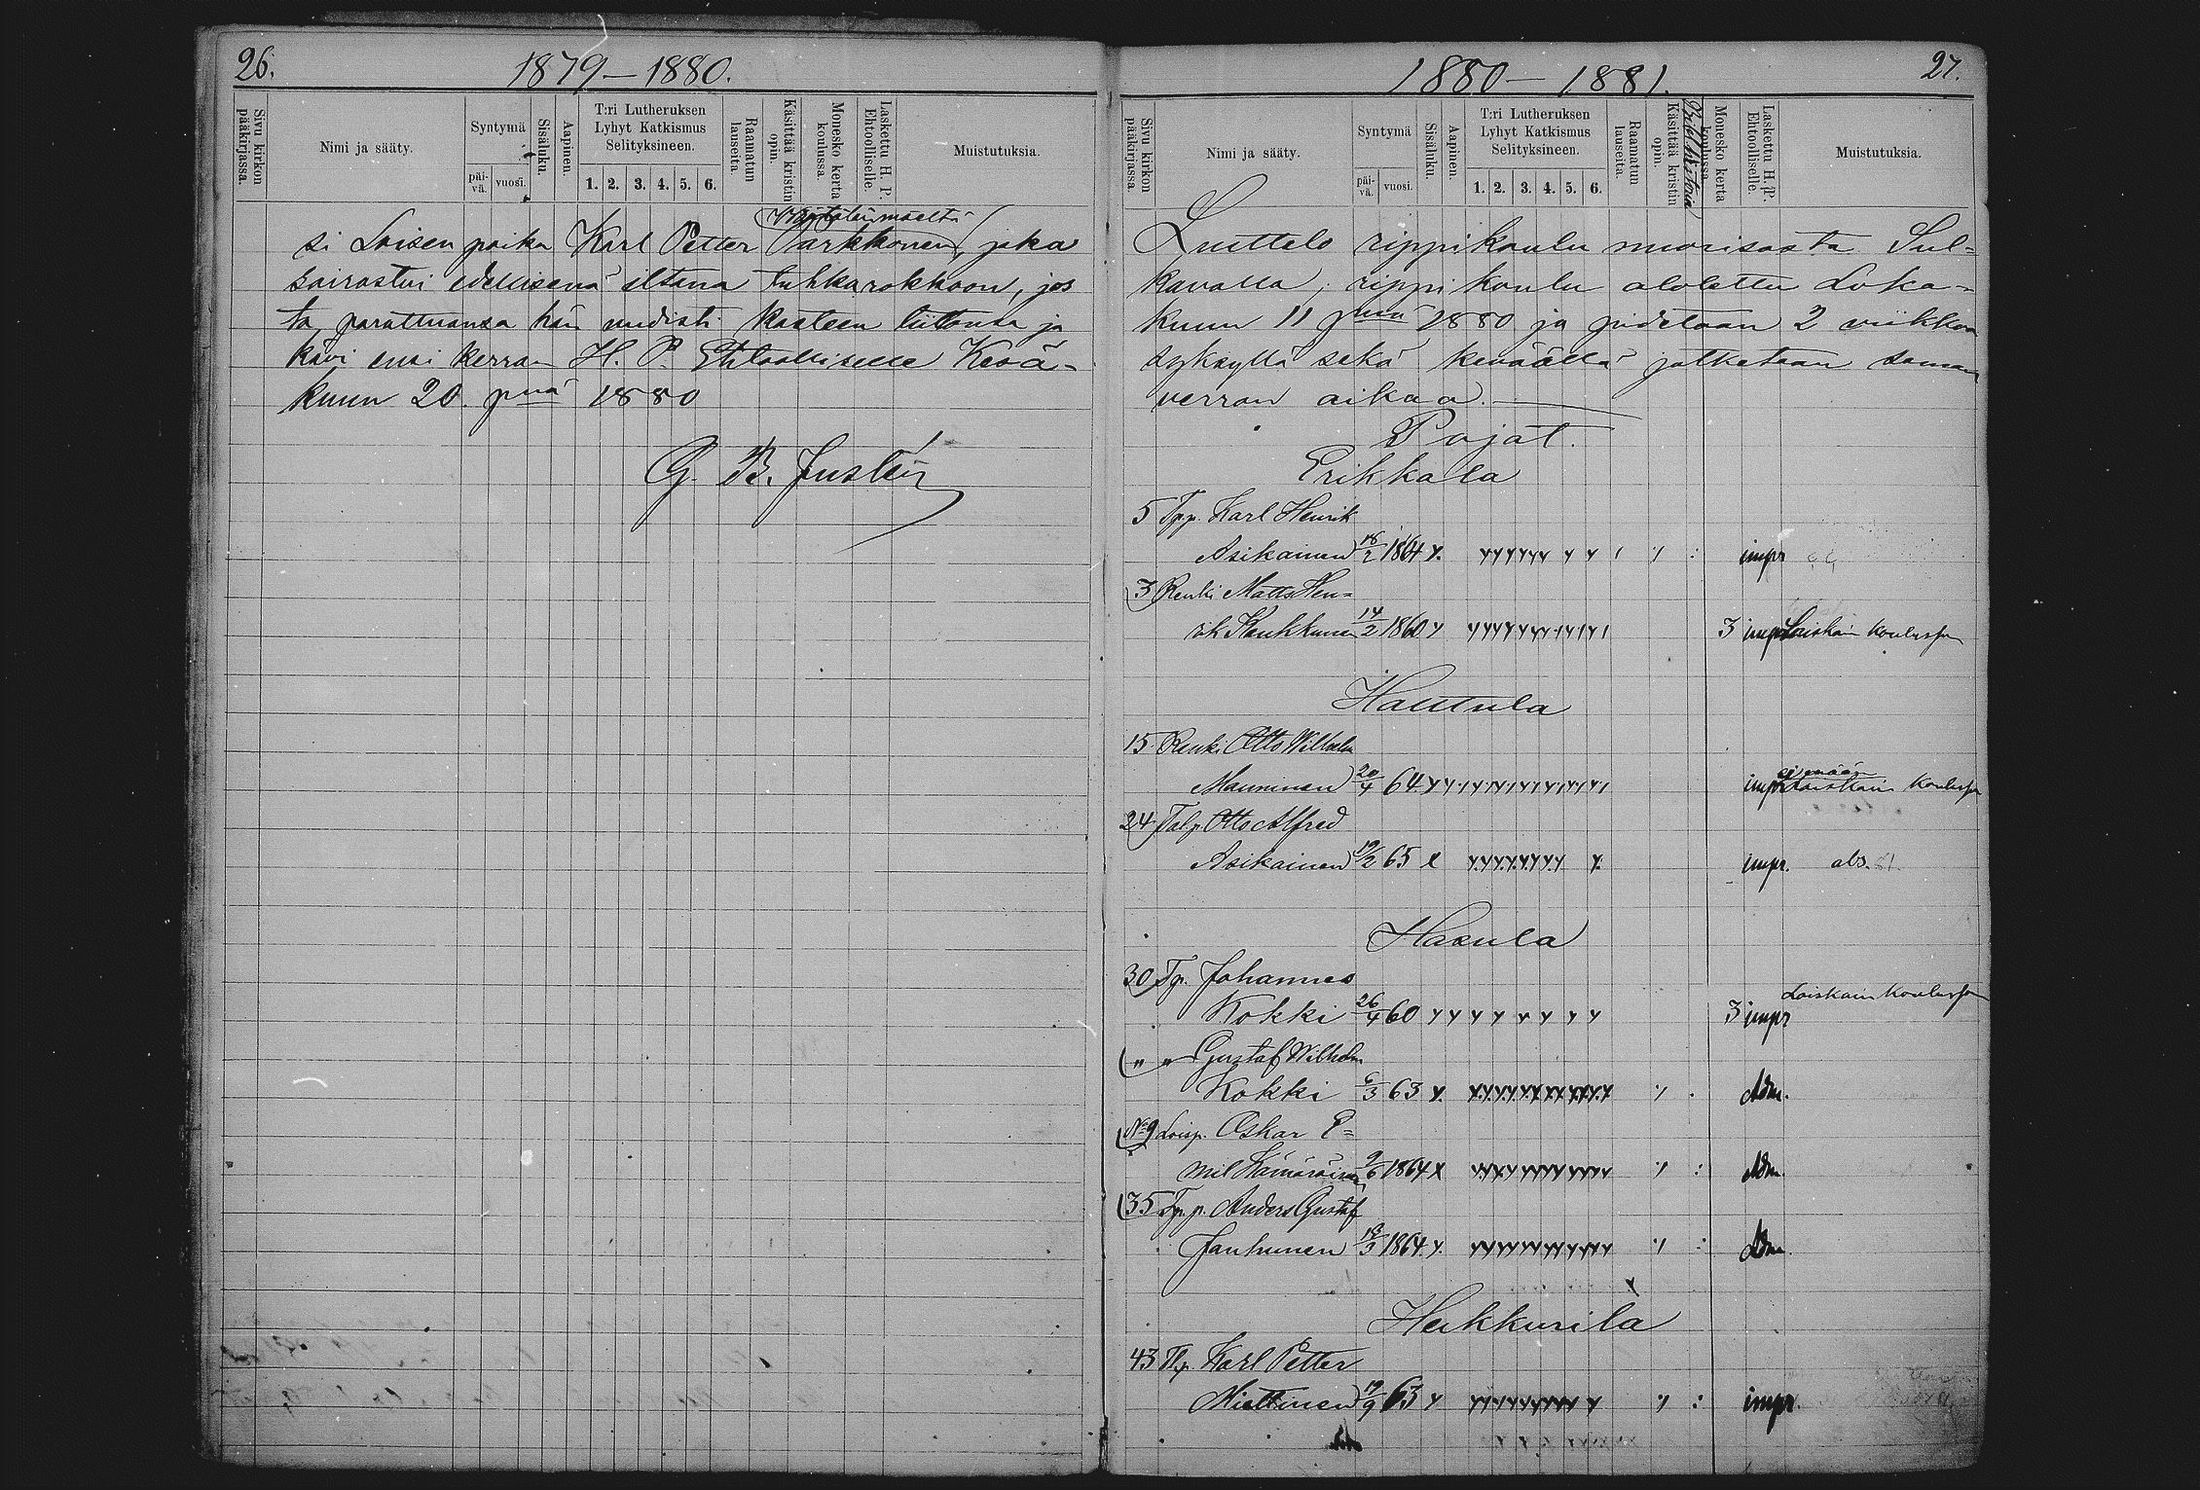 26.
1879–1880.
Sivu kirkon pääkirjassa.
Nimi ja sääty.
Syntymä
päi-vä.
vuosi.
Sisäluku.
Aapinen.
T:ri Lutheruksen
Lyhyt Katkismus
Selityksineen.
1. 2. 3. 4. 5. 6.
Raamatun lauseita.
Käsittää kristin opin.
Monesko kerta koulussa.
Laskettu H. P. Ehtoolliselle.
Muistutuksia.
si Loisen poika Karl Petter Parkkonen, joka
sairastui edellisenä iltana tuhkarokkoon, jos
ta parattuansa hän uudisti kasteen liittonsa ja
kävi ensi kerran H. P. Ehtoolliselle Kesä-
kuun 20 pnä 1880
G. B. Justén
27.
1880–1881.
Sivu kirkon pääkirjassa.
Nimi ja sääty.
Syntymä
päi-vä.
vuosi.
Sisäluku.
Aapinen.
T:ri Lutheruksen
Lyhyt Katkismus
Selityksineen.
1. 2. 3. 4. 5. 6.
Raamatun lauseita.
Käsittää kristin opin.
Bibl. historia
Monesko kerta koulussa.
Laskettu H. P. Ehtoolliselle.
Muistutuksia.
Luettelo rippikoulu nuorisosta Sul-
kavalla, rippikoulu alotettu Loka-
kuun 11 pnä 1880 ja pidetään 2 viikkoa
syksyllä sekä keväällä jatketaan saman
verran aikaa.
Pojat.
Erikkala
5 Tp.p. Karl Henrik
Asikainen 18/2 1864 impr
3 Renki Matts Hen-
rik Kaukkunen 14/2 1860 3 impr Laiskain koulussa
Hauttula
15 Renki Otto Wilhelm
Manninen 20/4 64 impr ei enään Laiskain koulussa
24 Tal.p. Otto Alfred
Asikainen 19/2 65 impr. abs. 81.
Hasula
30 Tp. Johannes
Kokki 26/4 60 3 impr Laiskain koulussa
" " Gustaf Wilhelm
Kokki 6/3 63 Adm.
No 9 Loisp. Oskar E-
mil Hämäräinen 9/6 1864 Adm.
35 Tp.p. Anders Gustaf
Janhunen 18/3 1864 Adm.
Heikkurila
43 Tp. Karl Petter
Miettinen 19/9 63 impr.